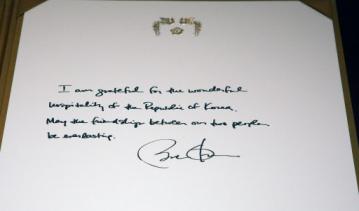 I am grateful for the wonderful
hospitality of the Republic of Korea.
May the friendship between our two peoples
be everlasting.